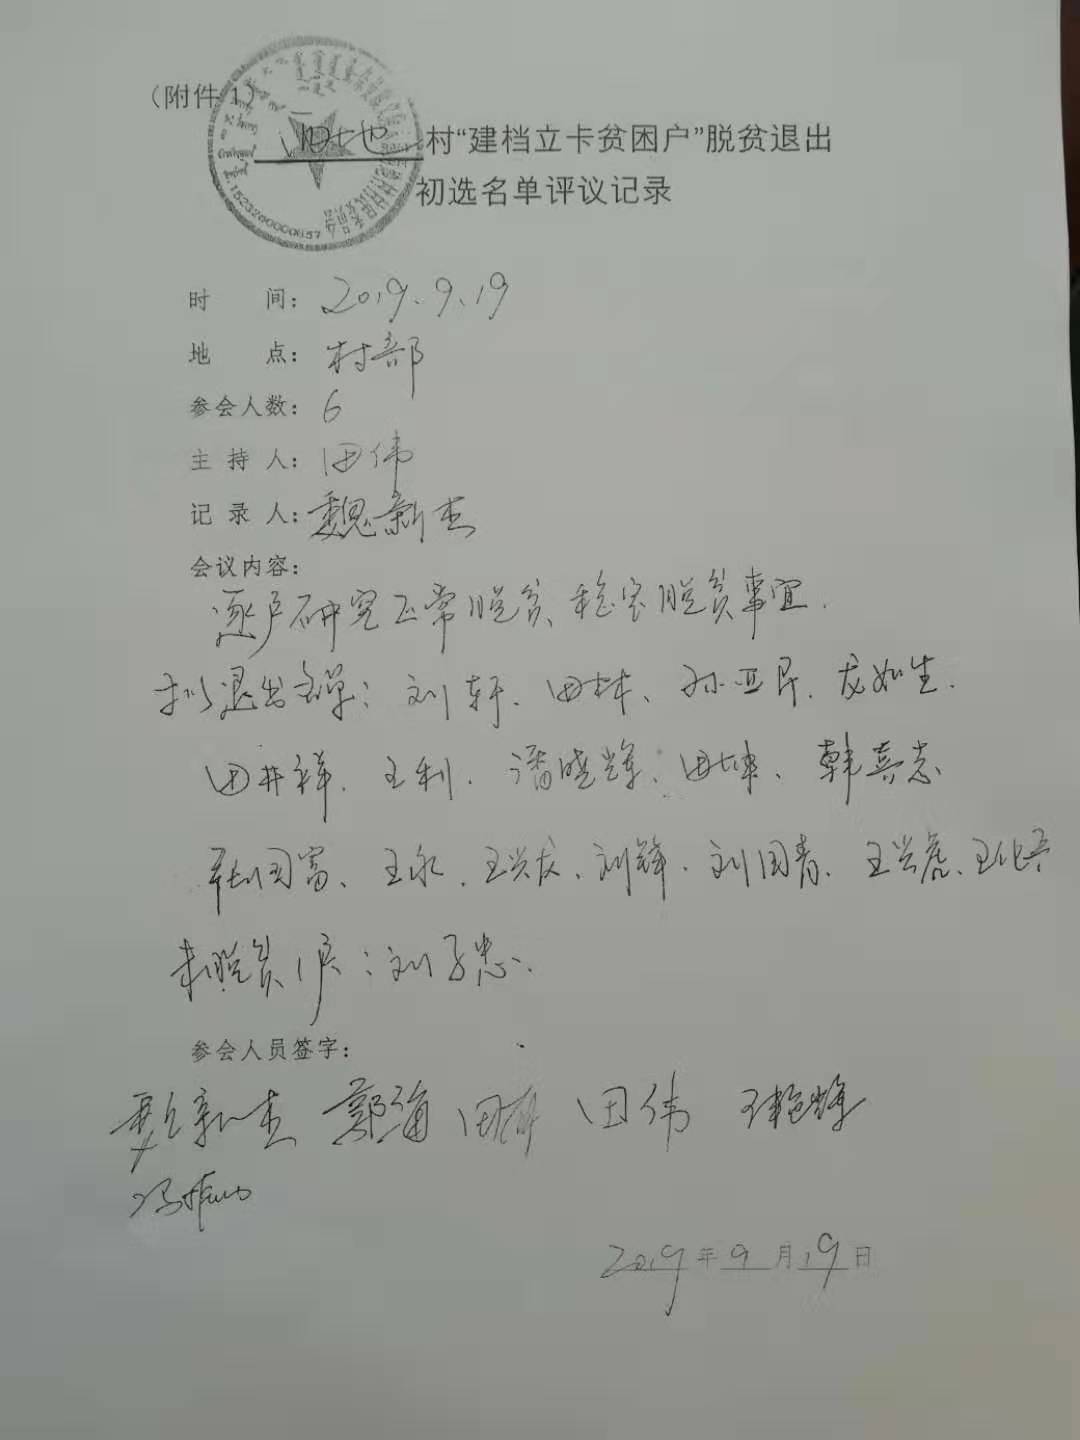 （附件 1）
村“建档立卡贫困户”脱贫退出
初选名单评议记录
时 间：2019.9.19
地 点：村部
参会人数：6
主 持 人：田伟
记 录 人：魏新杰
会议内容：
逐户研究正常脱贫、稳定脱贫事宜.
拟退出名单：刘轩、田林、孙亚民、龙如生.
田井祥、王利、潘晓辉、田坤、韩喜志
国富、王永、王兴友、刘锋、刘国青、王兴虎、王化
未脱贫户：刘子忠、
参会人员签字：
魏新杰 郑海 田 田伟 王艳辉
冯
2019年9月19日
1523260000657